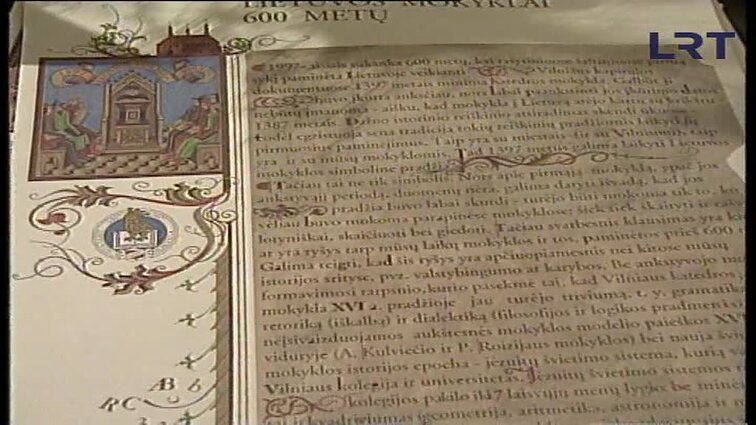 LIETUVOS MOKYKLAI
600 METŲ
LRT
1997-aisiais sukanka 600 metų, kai rašytiniuose šaltiniuose pirmą
sykį paminėta Lietuvoje veikianti Vilniaus kapitulos
dokumentuose 1397 metais minima katedros mokykla. Galbūt ji
buvo įkurta anksčiau, nors labai paankstinti jos įkūrimo datos
nebūtų įmanoma - aišku, kad mokykla į Lietuvą atėjo kartu su krikštu
1387 metais. Dažno istorinio reiškinio atsiradimas skendi ūkuose,
todėl egzistuoja sena tradicija tokių reiškinių pradžiomis laikyti jų
pirmuosius paminėjimus. Taip yra su miestais - ir su Vilniumi, taip
yra ir su mūsų mokyklomis. Tad 1397 metus galima laikyti Lietuvos
mokyklos simboline pradžia.
Tačiau tai ne tik simbolis. Nors apie pirmąją mokyklą, ypač jos
ankstyvąjį periodą, duomenų nėra, galima daryti išvadą, kad jos
pradžia buvo labai skurdi - turėjo būti mokoma tik to, ko
vėliau buvo mokoma parapinėse mokyklose: šiek tiek skaityti ir ra
lotyniškai, skaičiuoti bei giedoti. Tačiau svarbesnis klausimas yra ki
ar yra ryšys tarp mūsų laikų mokyklos ir tos, paminėtos prieš 600 m
Galima teigti, kad šis ryšys yra apčiuopiamesnis nei kitose mūsų
istorijos srityse, pvz. valstybingumo ar karybos. Be ankstyvojo mu
formavimosi tarpsnio, kurio pasekmė tai, kad Vilniaus katedros
mokykla XVI a. pradžioje jau turėjo triviumą, t. y. gramatik
retoriką (iškalbą) ir dialektiką (filosofijos ir logikos pradmenis
neįsivaizduojamos aukštesnės mokyklos modelio paieškos XV
viduryje (A. Kulviečio ir P. Roizijaus mokyklos) bei nauja švi
mokyklos istorijos epocha - jėzuitų švietimo sistema, kurią va
Vilniaus kolegija ir universitetas. Jėzuitų švietimo sistemos
kolegijos pakilo iki 7 laisvųjų menų lygio be minė
tai ir kvadriviumas (geometrija, aritmetika, astronomija ir
AB 6
RC